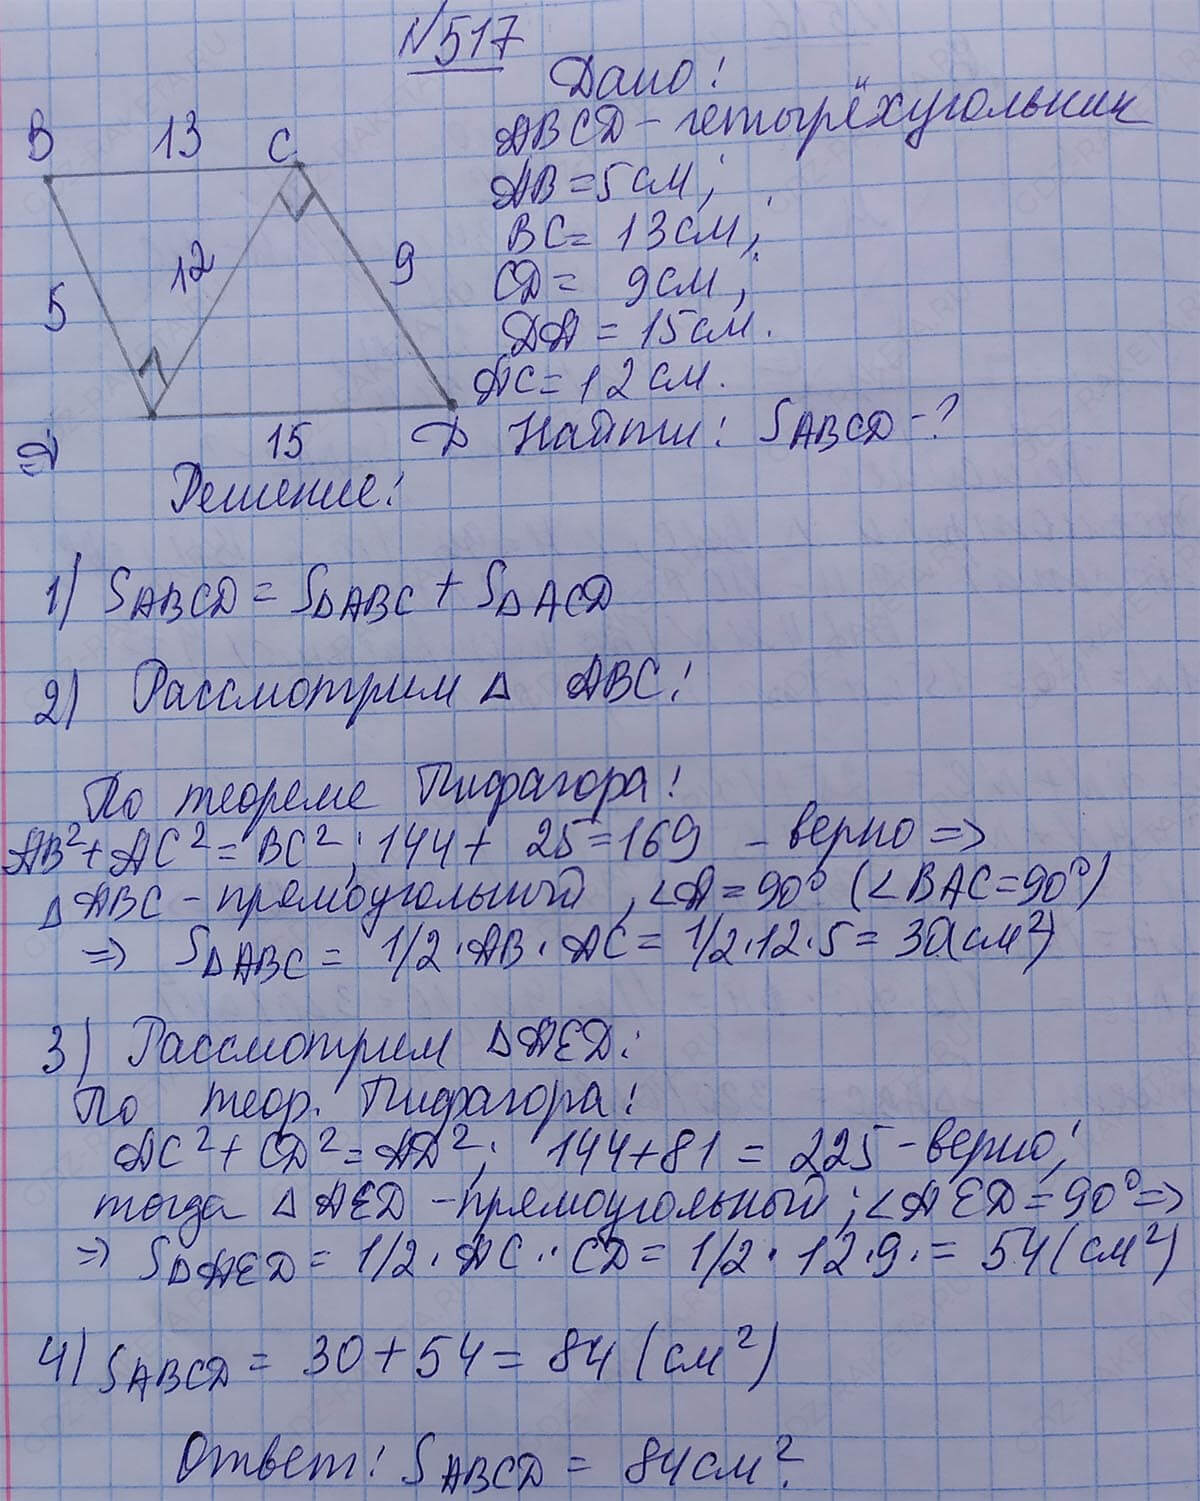 №517
Дано:
ABCD - четырёхугольник
AB = 5 см;
BC = 13 см;
CD = 9 см;
DA = 15 см.
AC = 12 см.
Найти: SABCD - ?
B 13 C
5 12 9
A 15 D
Решение:
1) SABCD = S△ABC + S△ACD
2) Рассмотрим △ ABC:
По теореме Пифагора:
AB² + AC² = BC²; 144 + 25 = 169 - верно =>
△ABC - прямоугольный, ∠A = 90° (∠BAC = 90°)
=> S△ABC = 1/2 · AB · AC = 1/2 · 12 · 5 = 30 (см²)
3) Рассмотрим △AED:
По теор. Пифагора:
AC² + CD² = AD²; 144 + 81 = 225 - верно;
тогда △AED - прямоугольный; ∠AED = 90° =>
=> S△AED = 1/2 · AC · CD = 1/2 · 12 · 9 · = 54 (см²)
4) SABCD = 30 + 54 = 84 (см²)
Ответ: SABCD = 84 см².